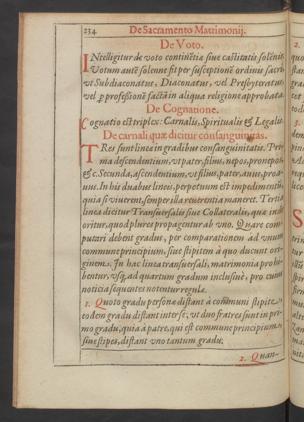 234 De Sacramento Matrimonij.
De Voto.
INtelligitur de voto continẽtia siue castitatis solẽnis
Votum autẽ solenne fit per susceptionẽ ordinis sacri
vt Subdiaconatus, Diaconatus, vel Presbyteratus
vel p professionẽ factã in aliqua religione approbata.
De Cognatione.
Cognatio est triplex: Carnalis, Spiritualis & Legalis
De carnali quæ dicitur cõsanguinitas.
TRes sunt lineæ in gradibus consanguinitatis. Pri
ma descendentium, vt pater, filius, nepos, pronepos
& c. Secunda, ascendentium, vt filius, pater, auus, proa-
uus. In his duabus lineis, perpetuum est impedimentũ,
quia si viuerent, semper illa reuerentia maneret. Tertia
linea dicitur Transuersalis siue Collateralis, quæ in
oritur, quod plures propagentur ab vno. Quare com
putari debent gradus, per comparationem ad vnum
commune principium, siue stipitem à quo ducunt ori
ginem. In hac linea transuersali, matrimonia prohi-
bentur, vsq; ad quartum gradum inclusiuè, pro cuius
noticia sequentes notentur regulæ.
1. Quoto gradu personæ distant à cõmuni stipite
todem gradu distant inter sè, vt duo fratres sunt in pri-
mo gradu, quia à patre, qui est commune principium
siue stipes, distant vno tantum gradu.
2. Quan-